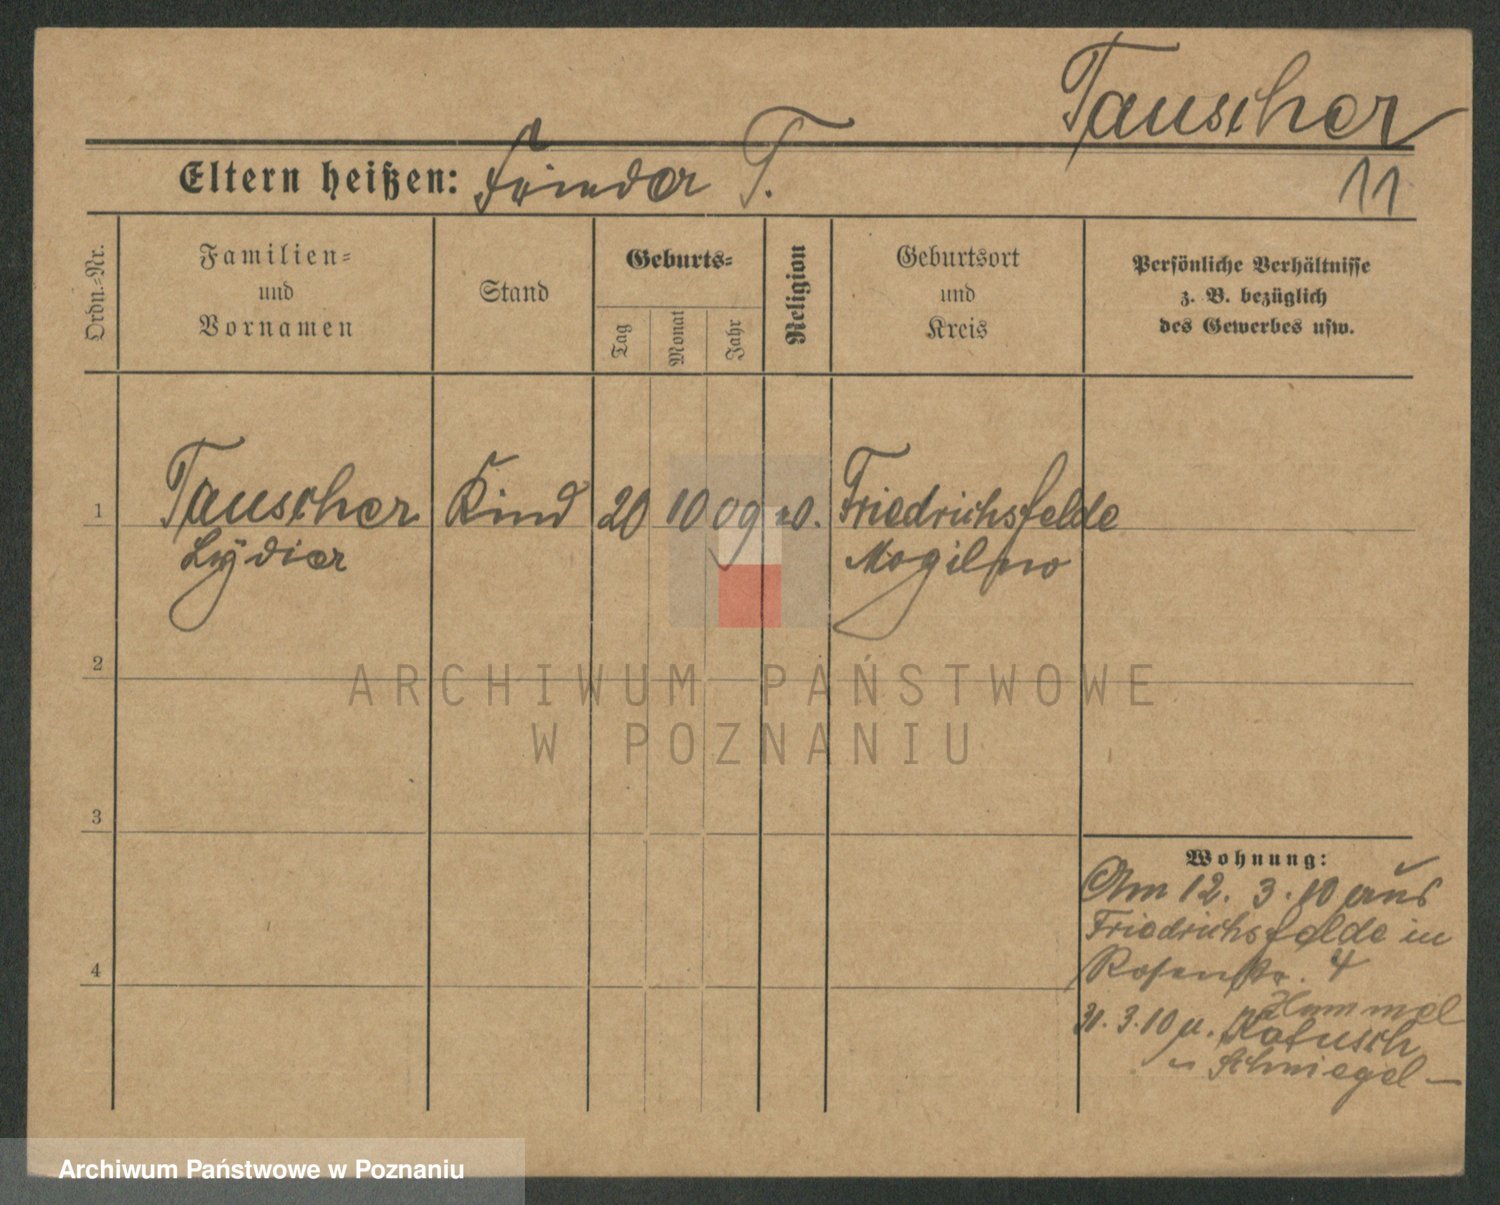 Tauscher
Eltern heißen: T.
11
Ordn.-Nr.
Familien=
und
Vornamen
Stand
Geburts=
Tag
Monat
Jahr
Religion
Geburtsort
und
Kreis
Persönliche Verhältnisse
z. B. bezüglich
des Gewerbes usw.
1
Tauscher
Lydia
Kind
20
10
09
Friedrichsfelde
Mogilno
2
3
4
Wohnung:
Am 12. 3. 10 aus
Friedrichsfelde in
Rosenstr. 4
Hammel
31. 3. 10 u.
Schmiegel —
ARCHIWUM PAŃSTWOWE
W POZNANIU
Archiwum Państwowe w Poznaniu